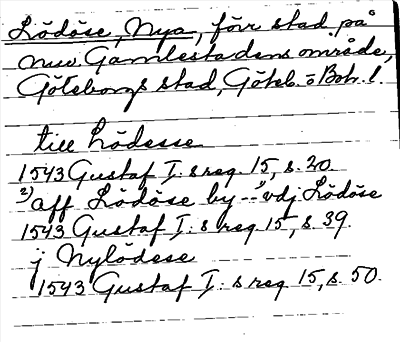 Lödöse, Nya, förr stad på
nuv. Gamlestadens område,
Göteborgs stad, Göteb. o Boh. l.
till Lödesse
1543 Gustaf I:s reg. 15, s. 20.
2) aff Lödöse by -- vdj Lödöse
1543 Gustaf I:s reg 15, s. 39.
j Nylödese
1543 Gustaf I:s reg 15, s. 50.